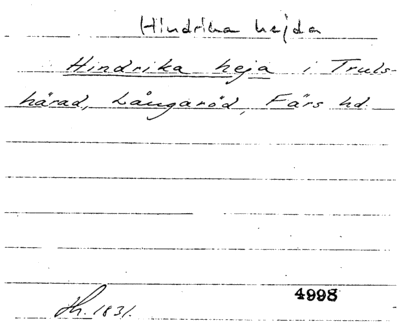 Hindrika hejda
Hindrika heja i Truls-
härad, Långaröd, Färs hd.
4998
Hh. 1831.